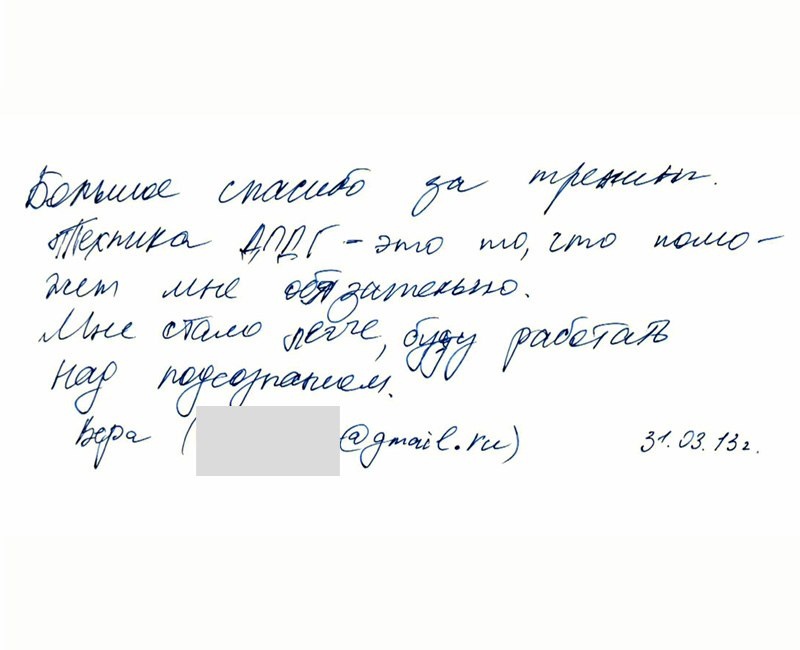 Большое спасибо за тренинг.
Техника ДПДГ - это то, что помо-
жет мне обязательно.
Мне стало легче, буду работать
над подсознанием.
Вера ( @gmail.ru) 31.03.13г.